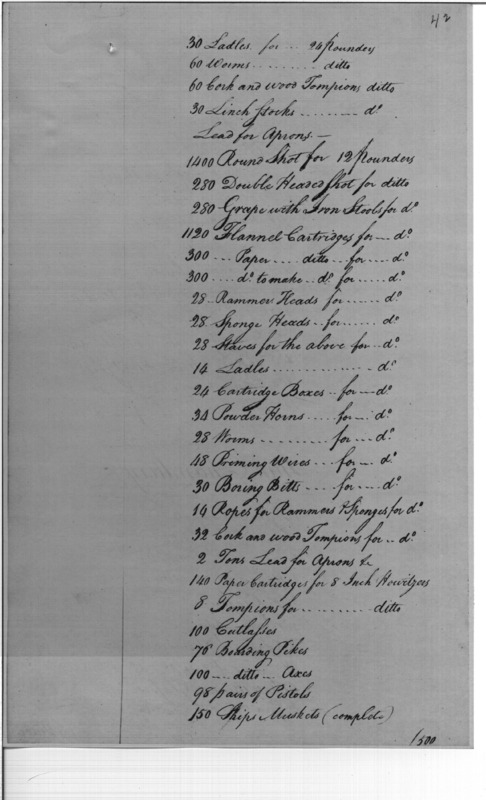 42
30 Ladles for ... 24 Pounders
60 Worms .......... ditto
60 Cork and wood Tompions ditto
30 Linch stocks .......... do.
Lead for Aprons. —
1400 Round Shot for 12 Pounders
280 Double Headed Shot for ditto
280 Grape with Iron Stools for do.
1120 Flannel Cartridges for — do.
300 ... Paper ..... ditto ... for ..... do.
300 ..... do. to make .. do. for ..... do.
28 .. Rammer Heads for ...... do.
28 .. Sponge Heads .. for ...... do.
28 Staves for the above for .. do.
14 Ladles .............. do.
24 Cartridge Boxes .. for — do.
34 Powder Horns ..... for ... do.
28 Worms .......... for ... do.
48 Priming Wires ... for ... do.
30 Boring Bitts ..... for ... do.
14 Ropes for Rammers & Sponges for do.
32 Cork and wood Tompions for .. do.
2 Tons Lead for Aprons &c
140 Paper Cartridges for 8 Inch Howitzers
8 Tompions for .......... ditto
100 Cutlasses
76 Boarding Pikes
100 .... ditto ... Axes
98 pairs of Pistols
150 Ships Muskets (complete)
1500